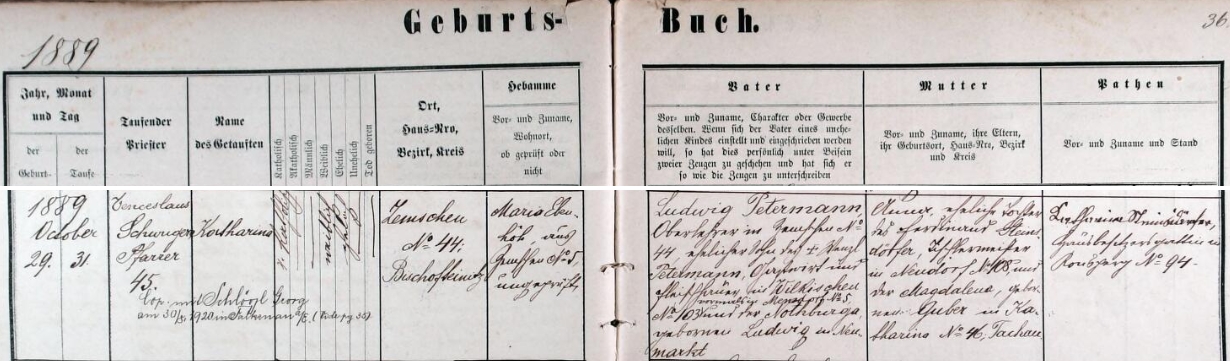 Geburts-
Buch.
36
1889
Jahr, Monat
und Tag
der
Geburt-
der
Taufe
Taufender
Priester
Name
des Getauften
Katholisch
Akatholisch
Männlich
Weiblich
Ehelich
Unehelich
Tod geboren
Ort,
Haus-Nro,
Bezirk, Kreis
Hebamme
Vor- und Zuname,
Wohnort,
ob geprüft oder
nicht
Vater
Vor- und Zuname, Charakter oder Gewerbe
desselben. Wenn sich der Vater eines unehe-
lichen Kindes einstellt und eingeschrieben werden
will, so hat dies persönlich unter Beisein
zweier Zeugen zu geschehen und hat sich er
so wie die Zeugen zu unterschreiben
Mutter
Vor- und Zuname, ihre Eltern,
ihr Geburtsort, Haus-Nro, Bezirk
und Kreis
Pathen
Vor- und Zuname und Stand
1889
October
29. 31
Wenceslaus
Schwinger
Pfarrer
45.
Katharina
Cop. mit Schlögl Georg
am 30/ 1920 in
Zemschen
No 44.
Bischofteinitz
Maria Eben-
höh, aus
Zemschen No 5.
ungeprüft
Ludwig Petermann
Oberlehrer in Zemschen No
44, ehelicher Sohn des † Wenzl
Petermann, Gastwirt und
Fleischhauer in Wilkischen
No 103 und der Nothburga
gebornen Ludwig in Neu-
markt
Anna, eheliche Tochter
des Ferdinand Steins-
dörfer, Tischlermeister
in Neudorf N 48 und
der Magdalena, gebor-
nen Huber in Ka-
tharina No 46, Tachau
Katharina
Hausbesitzersgattin in
Ronsperg No 94.